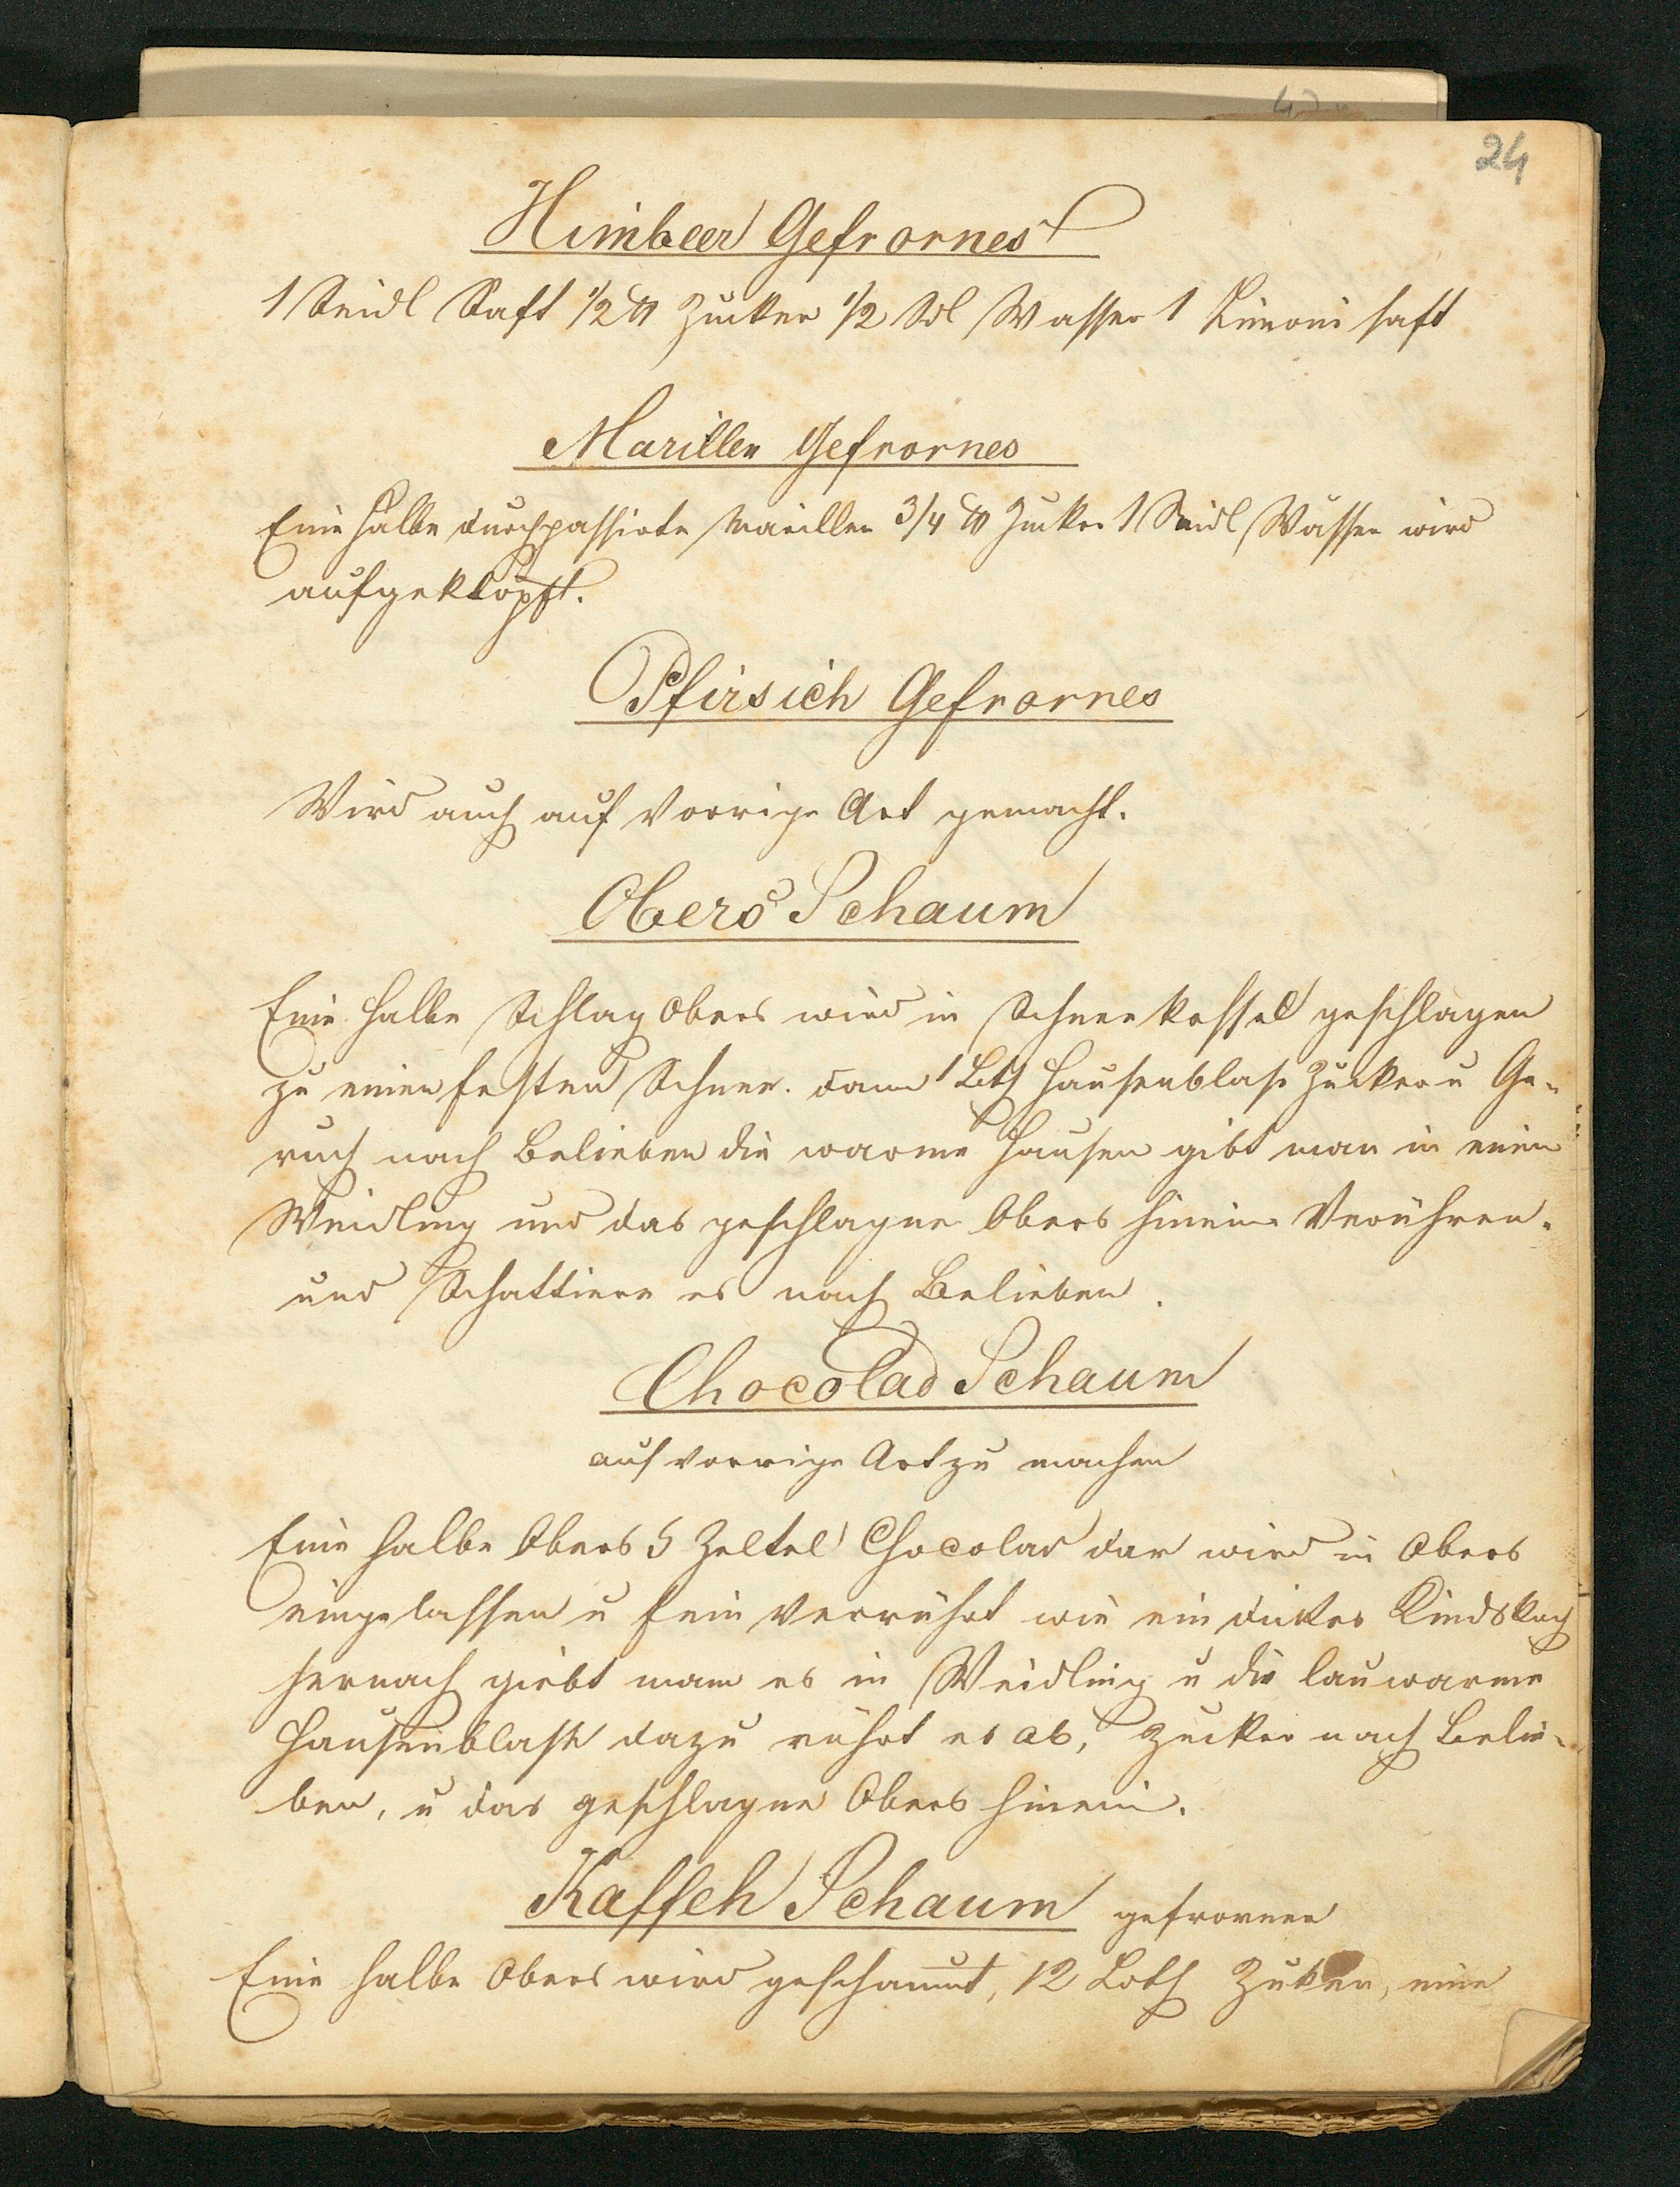 24
Himbeer Gefrornes
1 Seidl Saft 1/2 ℔ Zucker 1/2 Sdl Wasser 1 Limoni saft
Marillen Gefrornes
Eine halbe durchpassirte Marillen 3/4 ℔ Zucker 1 Seidl Wasser wird
aufgeklopft.
Pfirsich Gefrornes
Wird auch auf vorrige Art gemacht.
Obers Schaum
Eine halbe Schlag Obers wird in Schneekessel geschlagen
zu einen festen Schnee. dann 1 Loth Hausenblase Zucker u Ge-
ruch nach Belieben die warme Hausen gibt man in einen
Weidling und das geschlagne Obers hinein Verühren.
und Schattiere es nach Belieben.
Chocolad Schaum
auf vorrige Art zu machen
Eine halbe Obers 5 Zeltel Chocolad der wird in Obers
eingelassen u fein verrührt wie ein dickes Kindskoch
hernach giebt man es in Weidling u die lauwarme
Hausenblase dazu rührt es ab, Zucker nach Belie-
ben, u das geschlagne Obers hinein.
Kaffeh Schaum gefrorner
Eine halbe Obers wird geschaumt, 12 Loth Zuker, eine